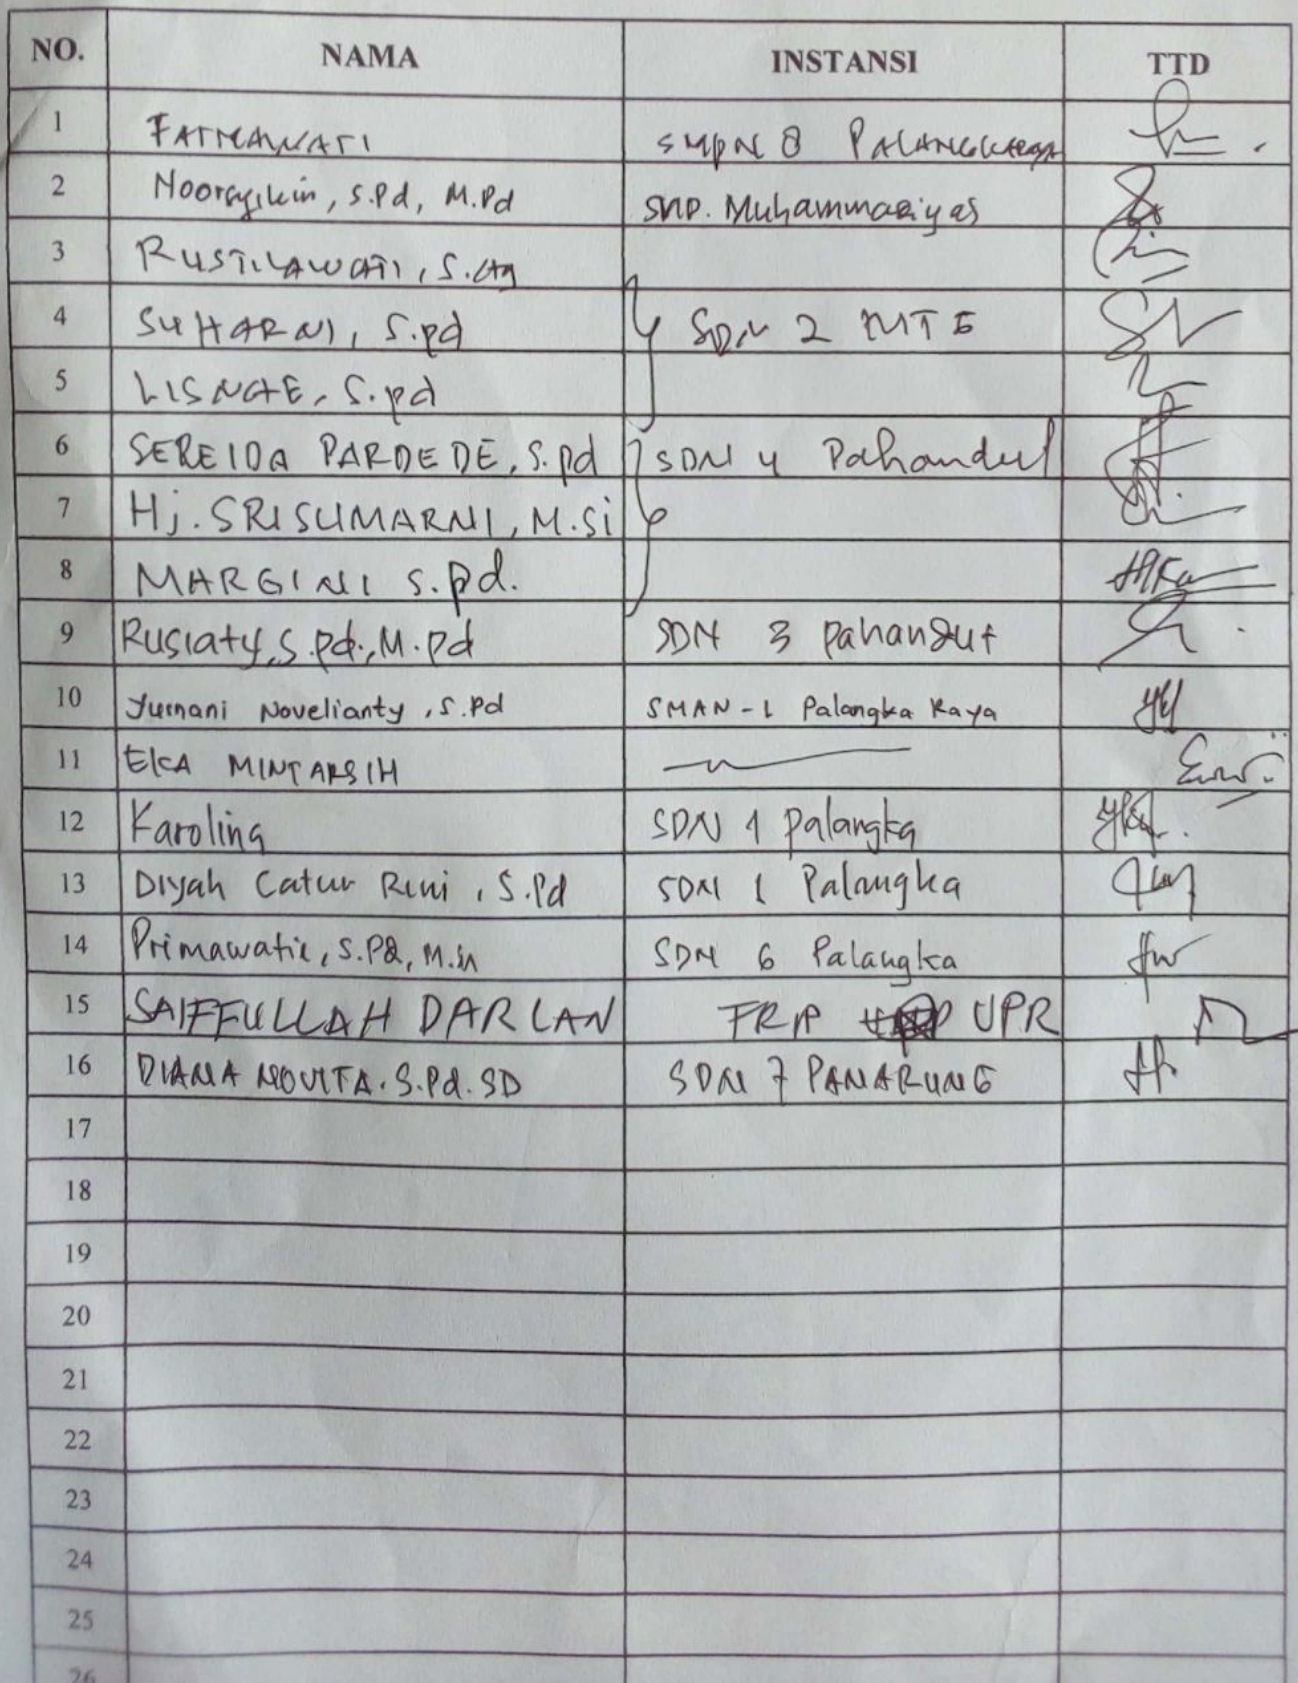 NO. NAMA INSTANSI TTD
1 FATMAWATI SMPN 8 PALANGKARAYA
2 Noorasyikin, S.Pd, M.Pd SMP. Muhammadiyah
3 RUSTILAWATI, S.Ag
4 SUHARNI, S.pd SDN 2 MTG
5 LISNAE, S.pd
6 SEREIDA PARDEDE, S.pd SDN 4 Pahandut
7 Hj. SRISUMARNI, M.Si
8 MARGINI S.pd.
9 Rusiaty, S.pd., M.pd SDN 3 pahandut
10 Yurnani Novelianty, S.Pd SMAN-1 Palangka Raya
11 EKA MINTARSIH
12 Karolina SDN 1 Palangka
13 Diyah Catur Rini, S.Pd SDN 1 Palangka
14 Primawatie, S.Pd, SDN 6 Palangka
15 SAIFFULLAH DARLAN UPR
16 DIANA NOVITA. S.Pd. SD SDN 7 PANARUNG
17
18
19
20
21
22
23
24
25
26